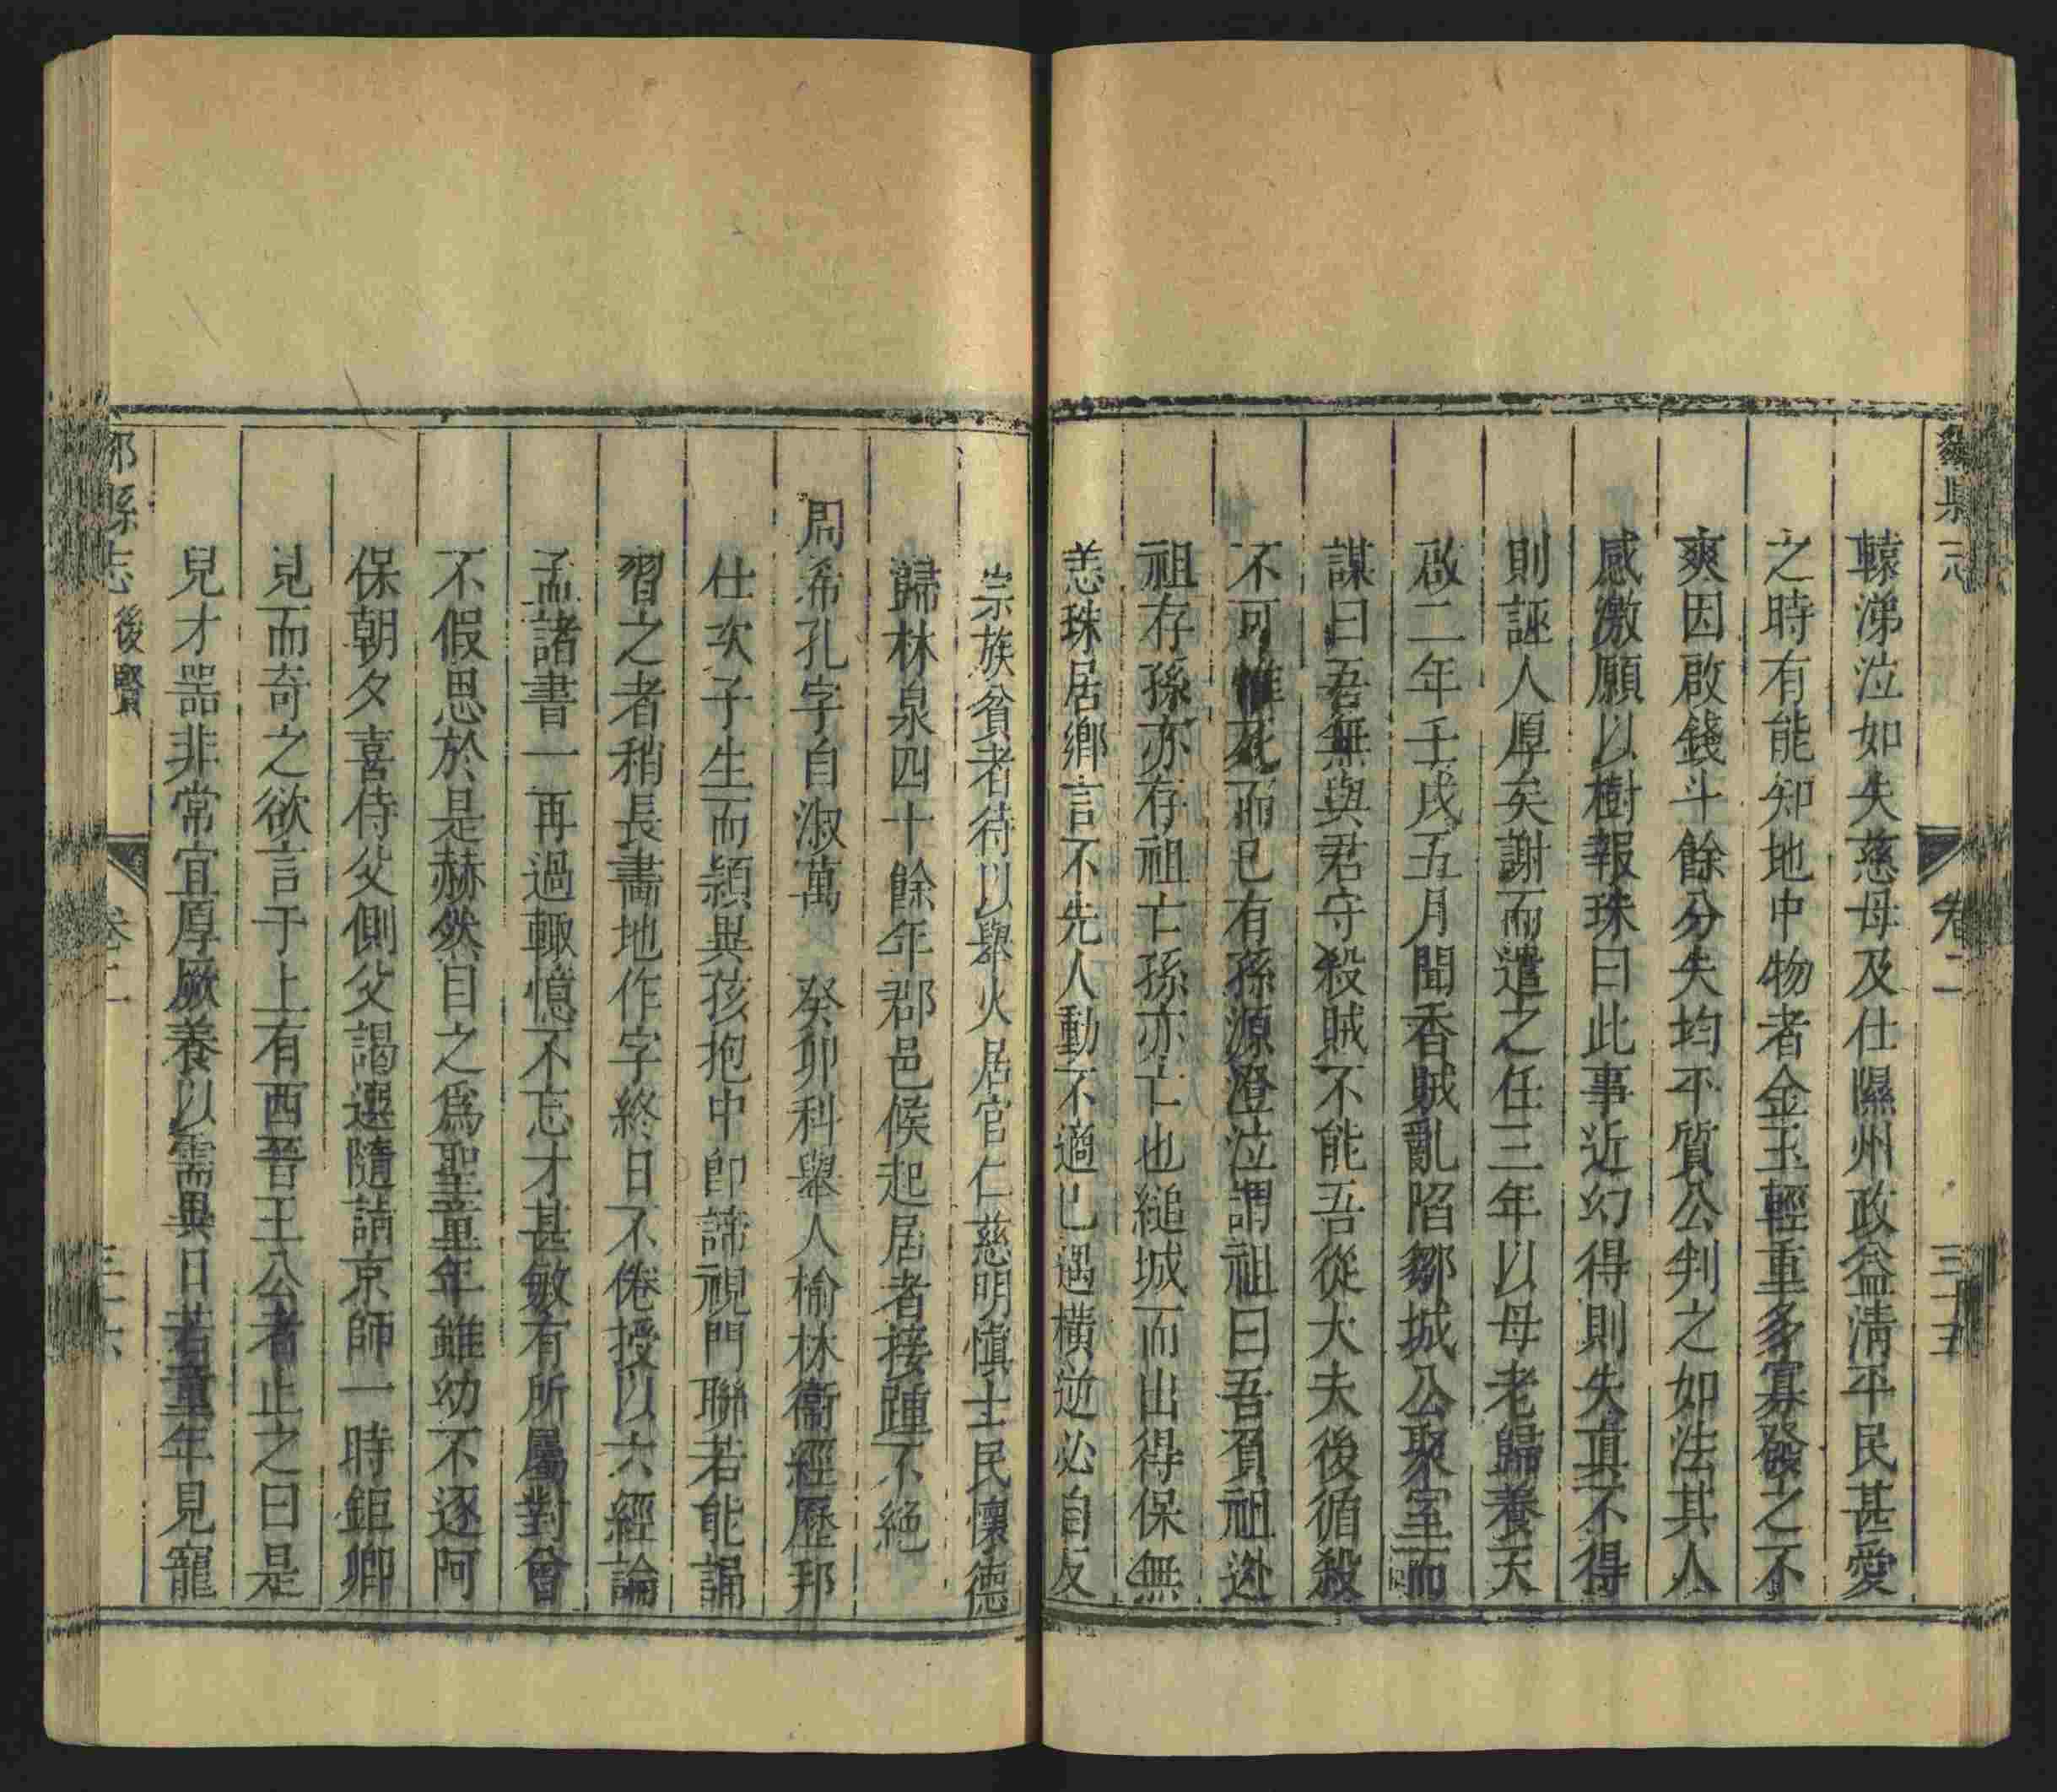 鄒縣志
卷二
三十五
轅涕泣如失慈母及仕隰州政益清平民甚愛
之時有能知地中物者金玉輕重多寡發之不
爽因啟錢斗餘分失均平質公判之如法其人
感激願以樹報珠曰此事近幻得則失真不得
則誣人厚矣謝而遣之任三年以母老歸養天
啟二年壬戌五月聞香賊亂陷鄒城公聚室而
謀曰吾無與君守殺賊不能吾從大夫後循殺
不可惟死而已有孫源澄泣謂祖曰吾負祖逃
祖存孫亦存祖亡孫亦亡也縋城而出得保無
恙珠居鄉言不先人動不適已遇橫逆必自反
宗族貧者待以舉火居官仁慈明慎士民懷德
歸林泉四十餘年郡邑候起居者接踵不絕
周希孔字自淑萬 癸卯科舉人榆林衛經歷邦
仕次子生而頴異孩抱中卽諦視門聯若能誦
習之者稍長畫地作字終日不倦授以六經論
孟諸書一再過輙憶不忘才甚敏有所屬對曾
不假思於是赫然目之爲聖童年雖幼不逐阿
保朝夕喜侍父側父謁選隨請京師一時鉅卿
見而奇之欲言于上有西晉王公者止之曰是
兒才噐非常宜厚厥養以需異日若童年見寵
鄒縣志
後賢
卷二
三十六